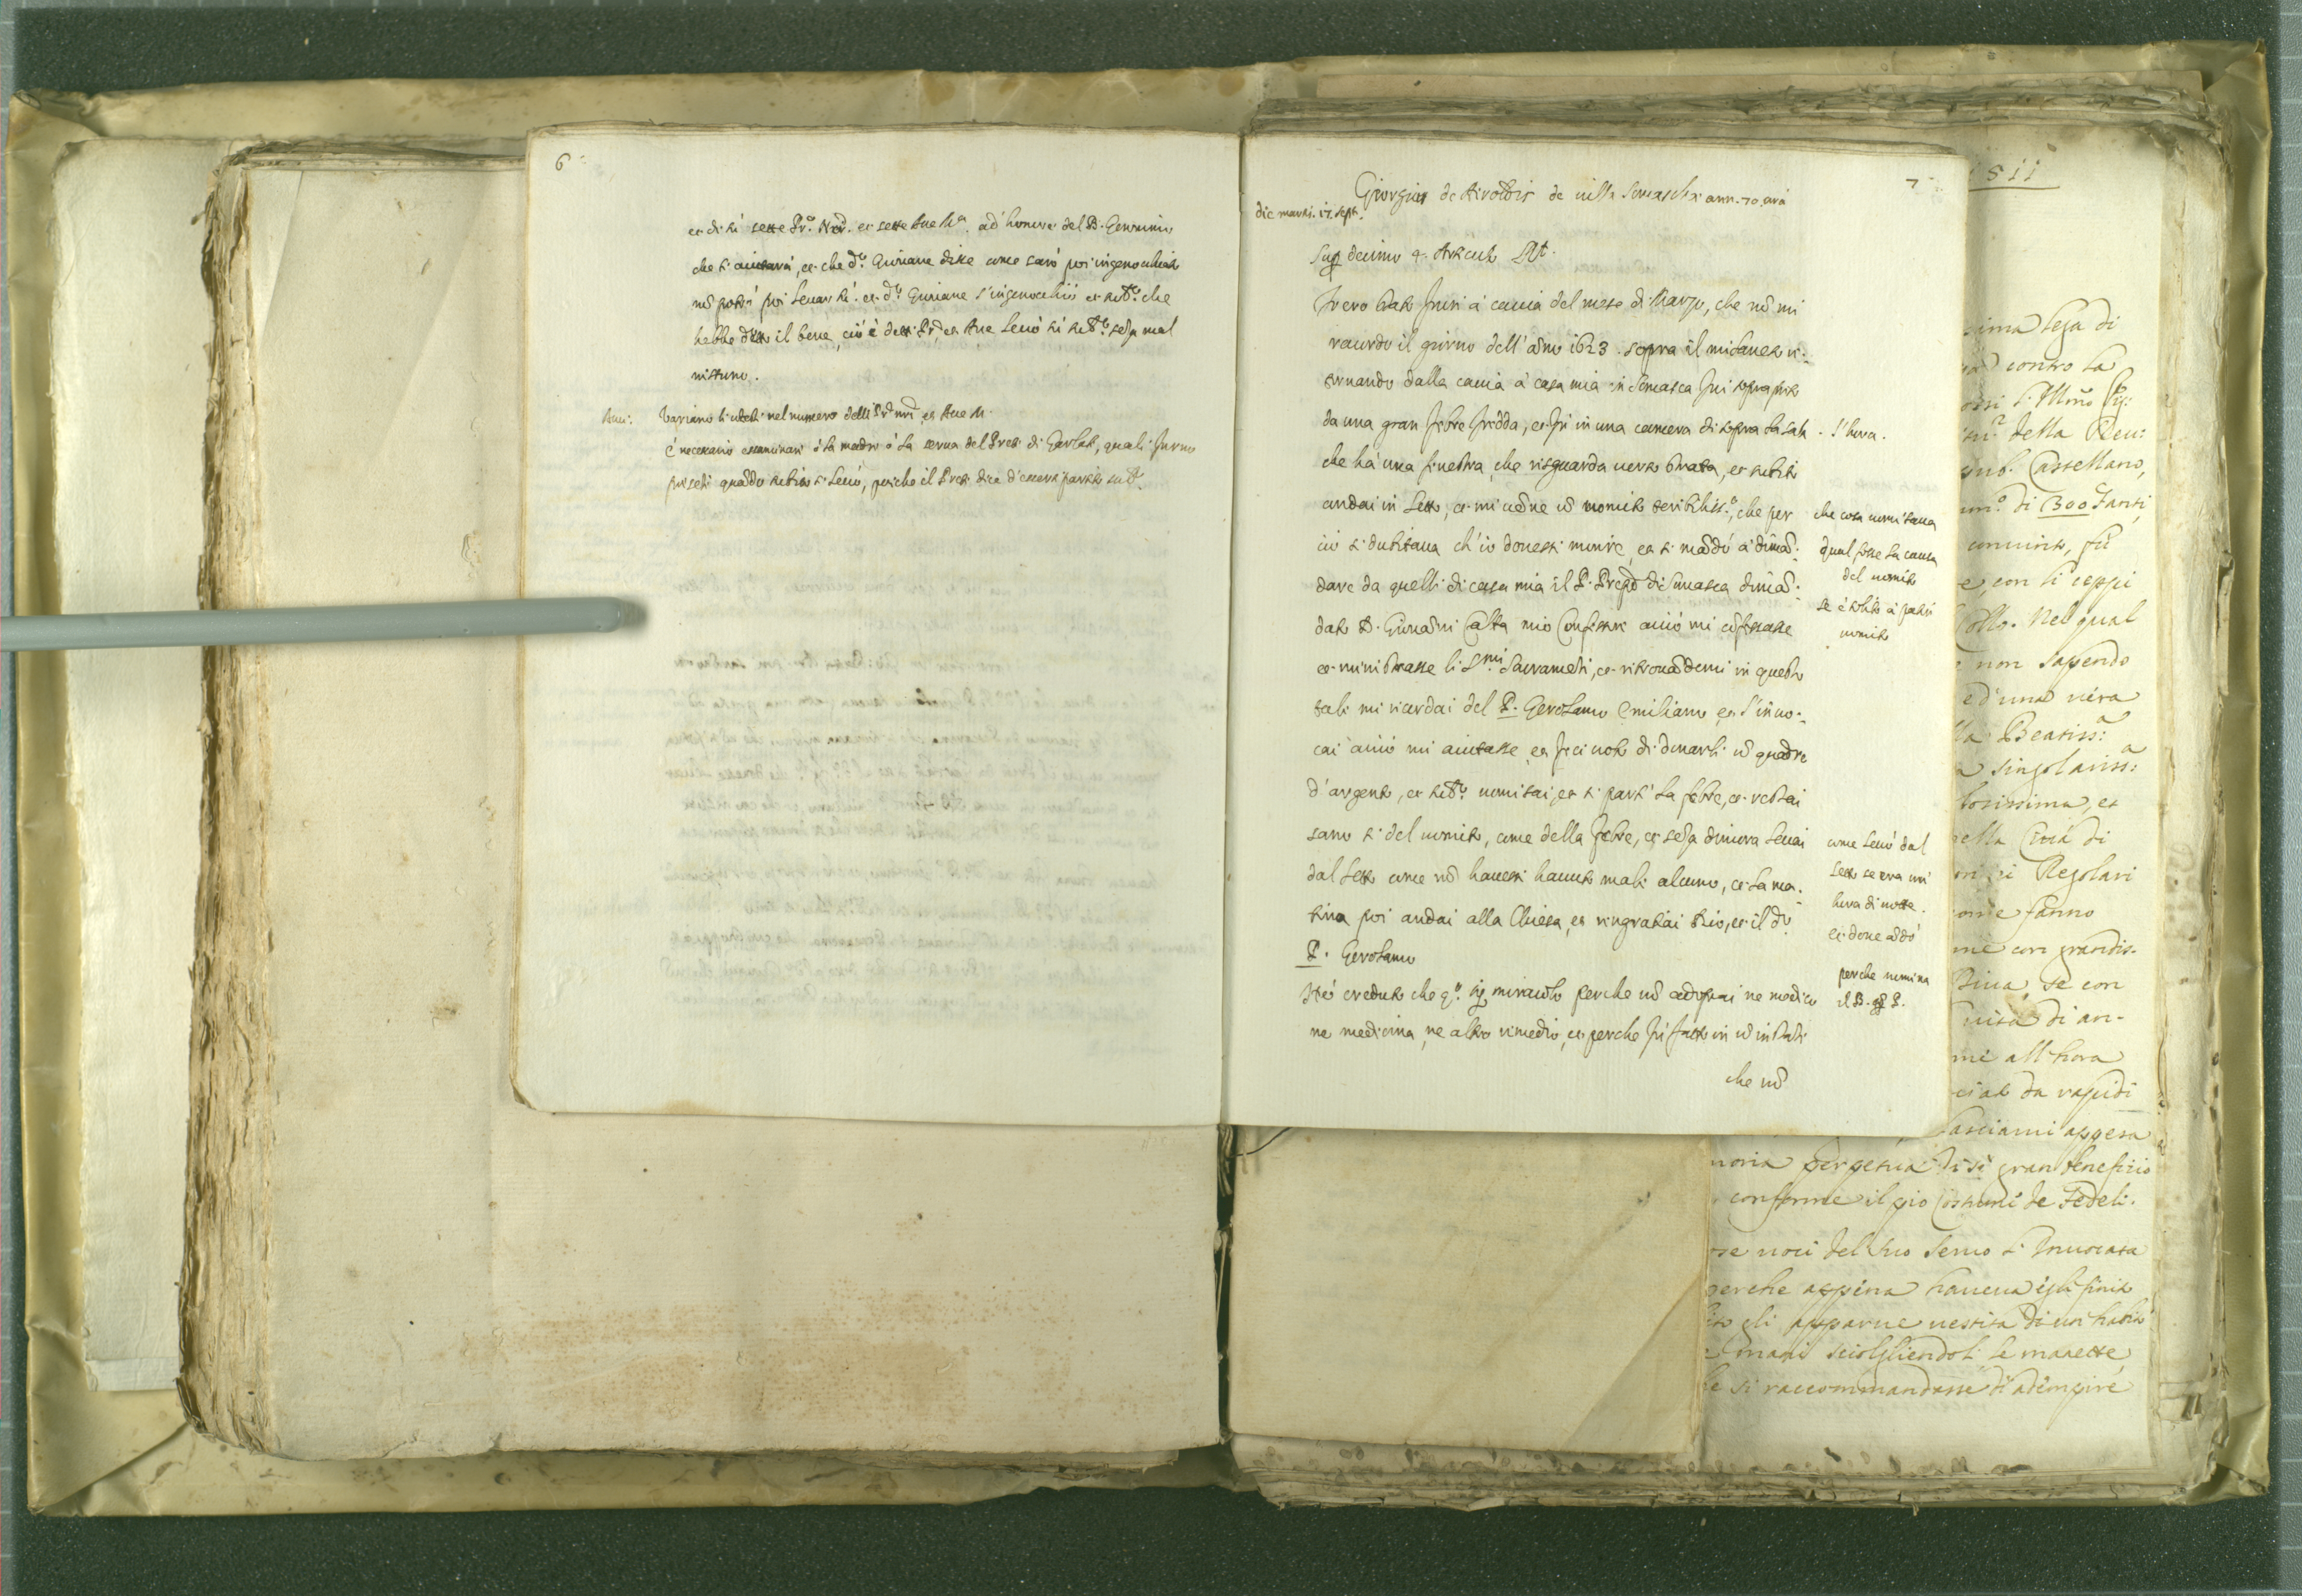 6
et di hì sette Pr. Nrı̃. et sette Aue Mª. ad' honore del B. Geronimo
che ti aiutarà, et che dº. Giuriane disse come sarò poi ingenochiato
nõ potrò poi leuar hì. et dº. Giuriane s'ingenochiò et subº. che
hebbe detto il bene, ciò è detti Pr. et Aue leuò sù subº. seza mal
nissuno.
Variano li utoli nel numero delli Pr̃ nrı̃ et Aue M.
è necessario essaminare ò la madre ò la serua del Prete di Garlate, quali furno
preseti quãdo subito si leuò, poiche il Prete dice d'essere partito subº.
7
Giorgius de Airoldis de villa Somascha ann. 70. circa
die martis. 17. sept.
Sup decimo 4. Articulo Rñt.
Io ero stato fuori à caccia del mese di Marzo, che nõ mi
raccordo il giorno dell'ãno 1623. sopra il milanese ri-
tornando dalla caccia à casa mia in Somasca fui sopra preso
da una gran febre fredda, et fù in una camera di sopra la sala
che hà una finestra, che risguarda uerso strata, et subito
andai in letto, et mi uẽne ũ uomito teribiliss.º, che per
ciò si dubitaua ch'io douessi morire, et si mãdò à dimã-
dare da quelli di casa mia il P. Prepo di Somasca dimã-
dato D. Giouãni Calta mio Confessore acciò mi cõfessasse
et ministrasse li Smi Sacrameti, et ritrouãdomi in questo
tale mi ricordai del P. Gerolamo Emiliano et l'inuo-
cai acciò mi aiutasse, et feci uoto di donarli ũ quadro
d'argento, et subº. uomitai, et si partì la febre, et restai
sano sì del uomito, come della febre, et seza dimora leuai
dal letto come nõ hauessi hauuto male alcuno, et la ma-
tina poi andai alla Chiesa, et ringratiai Dio, et il do
P. Gerolamo
Hò creduto che qº. sij miracolo perche nõ adoprai ne medico
ne medicina, ne altro rimedio, et perche fù fatto in ũ instante
che nõ
l'hora.
che cosa uomitaua
qual fosse la causa
del uomito
se è solito à patir
uomito
come leuò dal
letto se era un'
hora di notte.
et doue ãdò
perche nomina
il B. P.
811
sima lega di
contro la
della Reu:
Castellano,
di 1300 Fanti,
conuinto, fù
e, con li ceppi
Collo. Nel qual
non sapendo
ed' una uera
lla Beatiss:
a singolariss:
tosissima, et
ella Città di
Regolari
ome fanno
me con grandis-
Bina, se con
uita di an-
me all'hora
da rapidi
lasciarui appesa
moria perpetua di sì gran benefitio
conforme il pio Costume de Fedeli.
ose uoci del suo Seruo l'Inuocata
perche appena haueua egli finito
gli apparue uestita di un habito
mani sciolgliendoli le manette,
le si raccommandasse di adempire